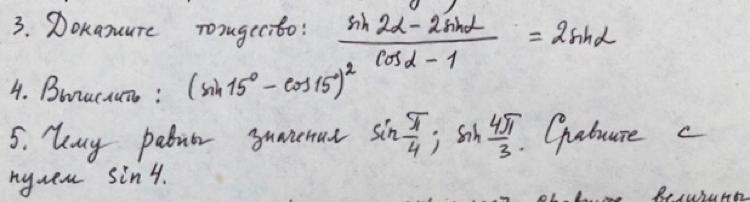 3. Докажите тождество: (sin 2α - 2sinα)/(cosα - 1) = 2sinα
4. Вычислить: (sin15° - cos15°)²
5. Чему равны значения sin π/4; sin 4π/3. Сравните с
нулем sin 4.
величины